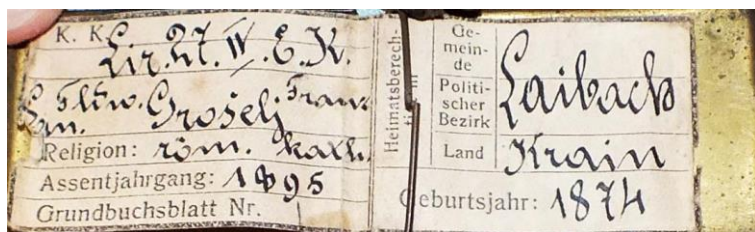 K. K. Lir. 27. IV. E. K.
Fldw. Grošelj Franz
Religion: röm. kath.
Assentjahrgang: 1895
Grundbuchsblatt Nr.
Heimatsberech-
Ge-
mein-
de
Politi-
scher
Bezirk
Laibach
Land Krain
Geburtsjahr: 1874